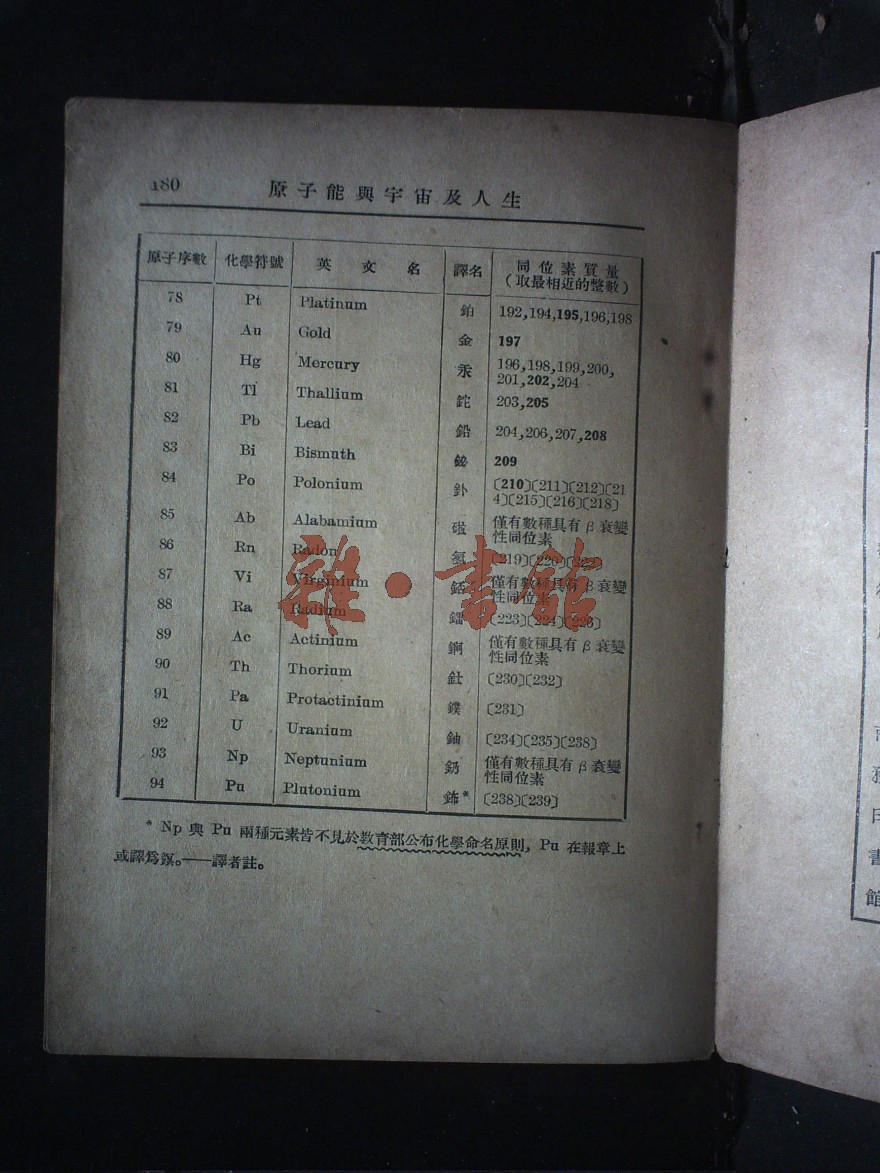 180 原子能與宇宙及人生
原子序數 化學符號 英文名 譯名 同位素質量
(取最相近的整數)
78 Pt Platinum 鉑 192,194,195,196,198
79 Au Gold 金 197
80 Hg Mercury 汞 196,198,199,200,
201,202,204
81 Tl Thallium 鉈 203,205
82 Pb Lead 鉛 204,206,207,208
83 Bi Bismuth 鉍 209
84 Po Polonium 釙 〔210〕〔211〕〔212〕〔21
4〕〔215〕〔216〕〔218〕
85 Ab Alabamium 僅有數種具有β衰變
性同位素
86 Rn Radon 氡 〔219〕〔220〕〔222〕
87 Vi Virginium 僅有數種具有β衰變
性同位素
88 Ra Radium 鐳 〔223〕〔224〕〔226〕
89 Ac Actinium 錒 僅有數種具有β衰變
性同位素
90 Th Thorium 釷 〔230〕〔232〕
91 Pa Protactinium 鏷 〔231〕
92 U Uranium 鈾 〔234〕〔235〕〔238〕
93 Np Neptunium 僅有數種具有β衰變
性同位素
94 Pu Plutonium 鈽* 〔238〕〔239〕
* Np 與 Pu 兩種元素皆不見於教育部公布化學命名原則, Pu 在報章上
或譯爲鏆。——譯者註。
雜·書館
商
務
印
書
館